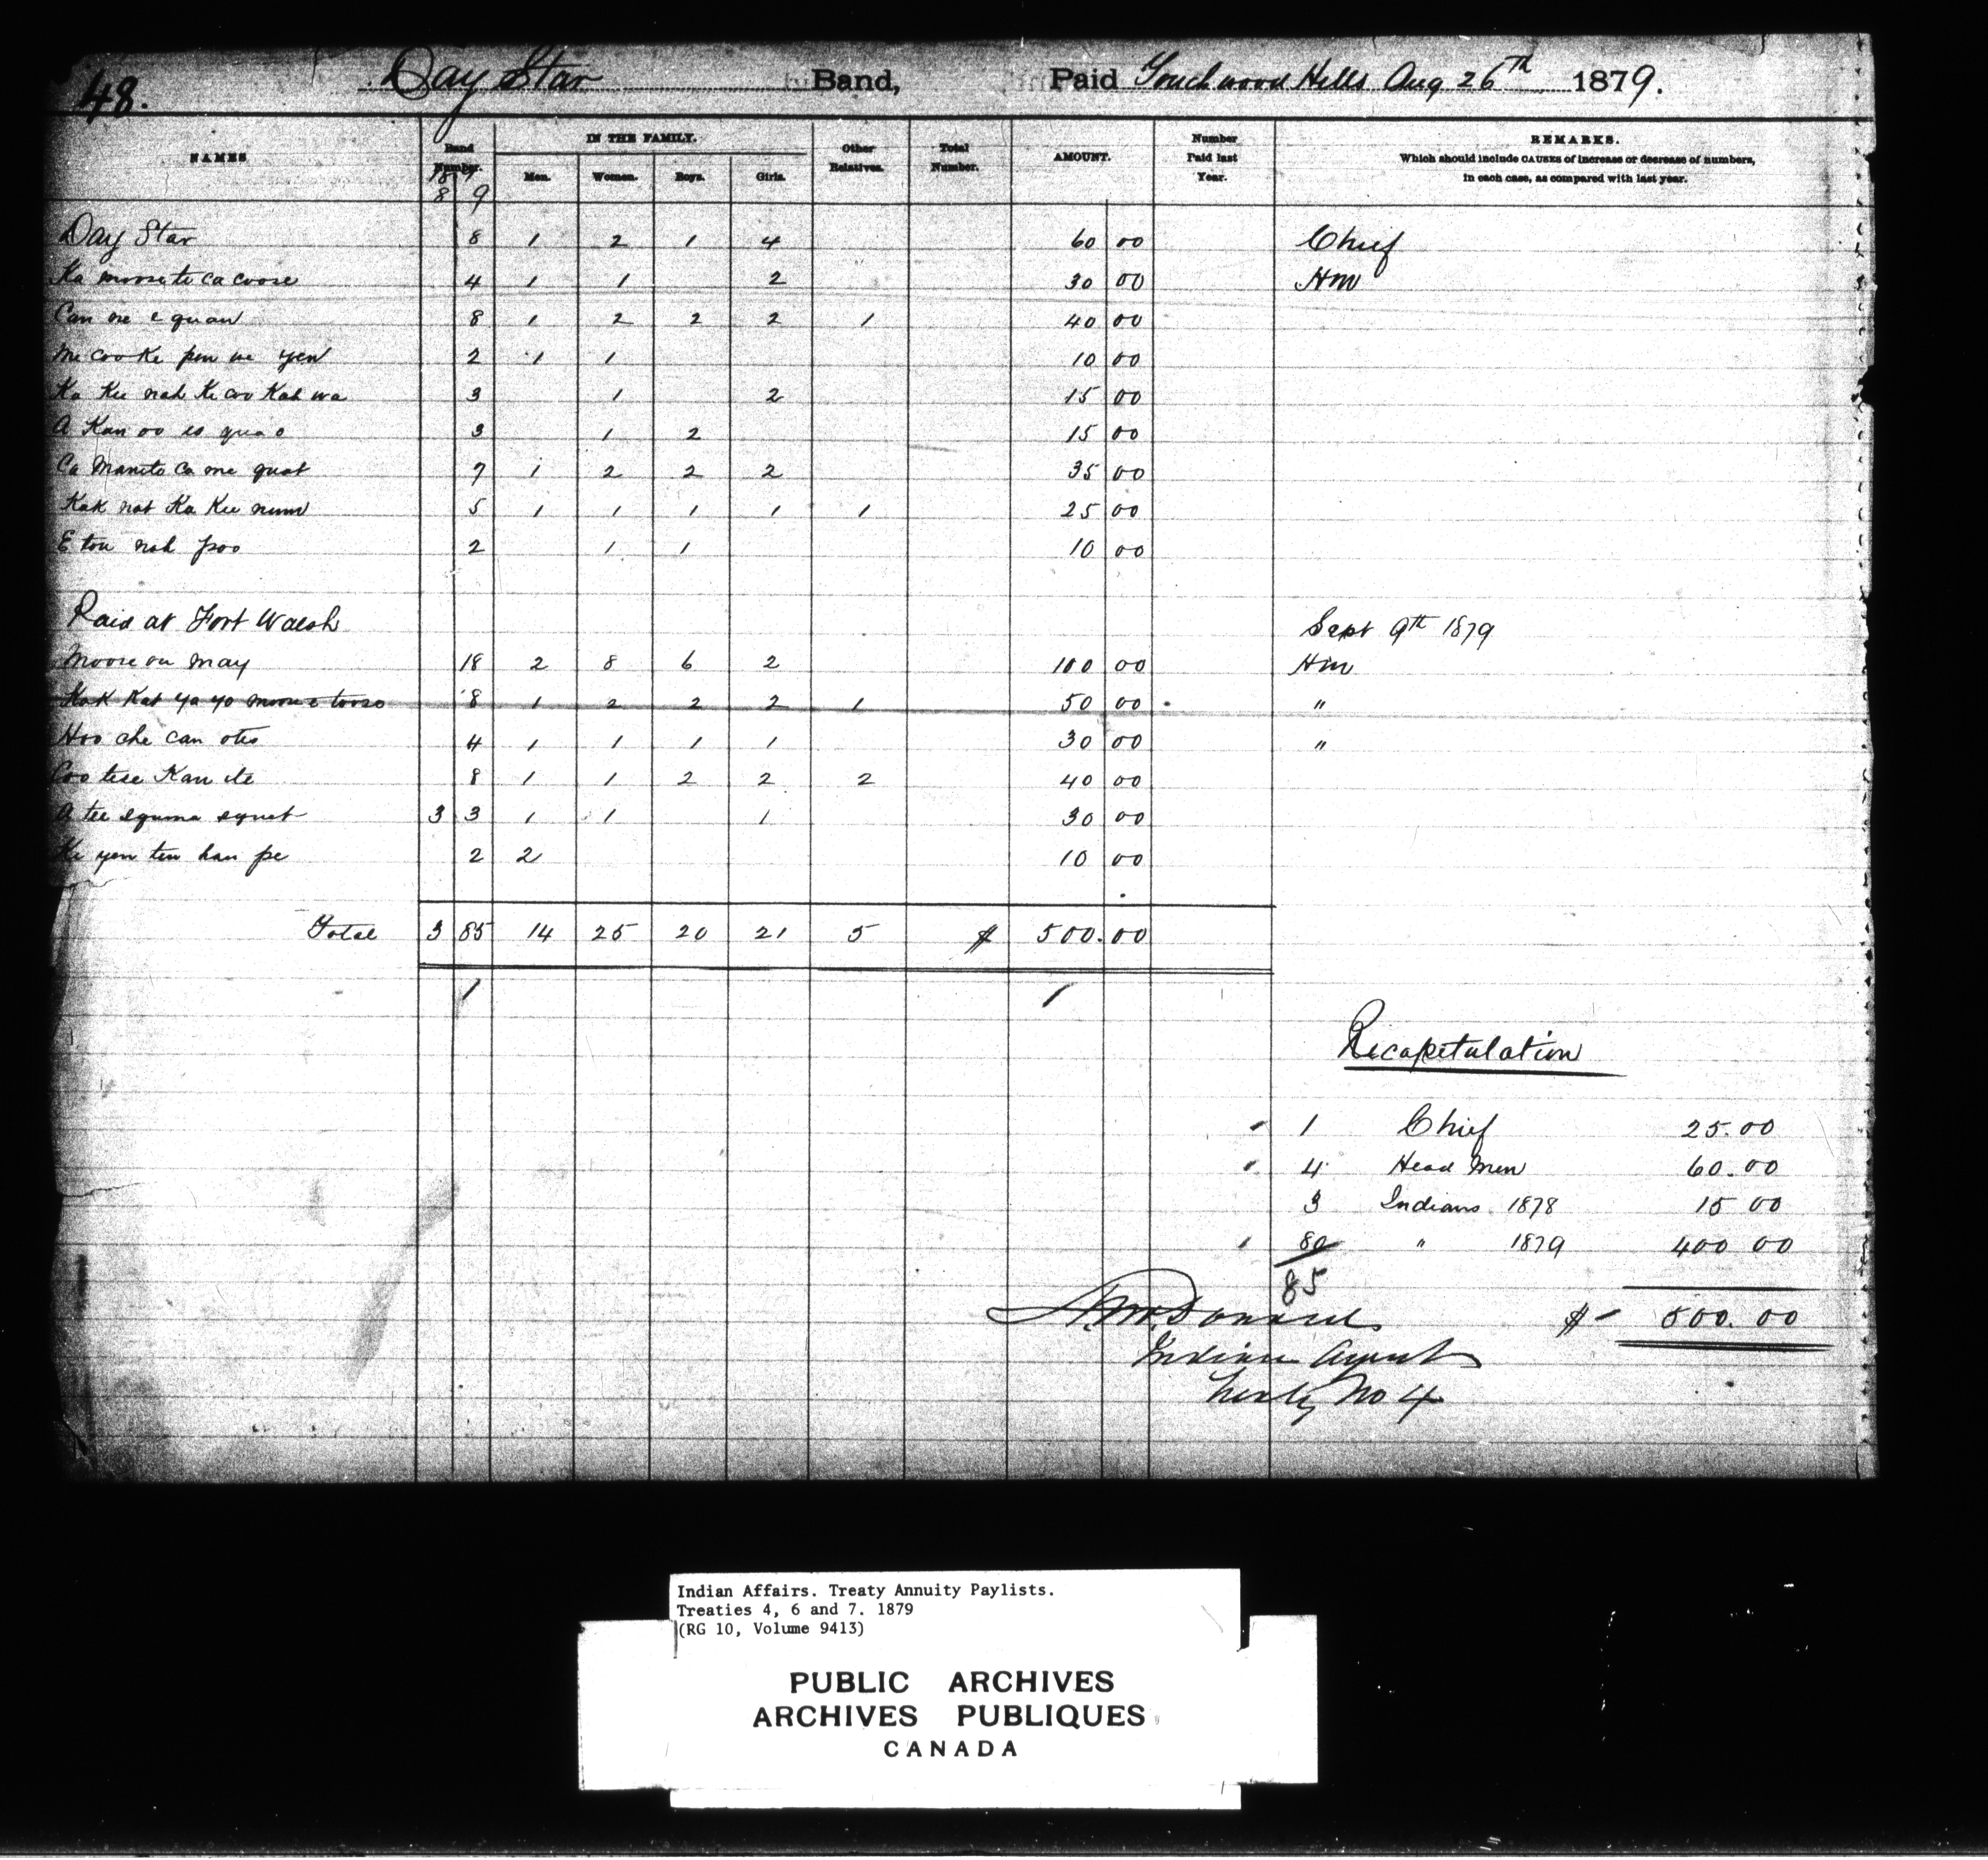 48. Day Star Band, Paid Touchwood Hills Aug 26th 1879.
NAMES Band Number. IN THE FAMILY. Other Relatives. Total Number. AMOUNT. Number Paid last Year. REMARKS.
Men. Women. Boys. Girls. Which should include CAUSES of increase or decrease of numbers, in each case, as compared with last year.
187
8 9
Day Star 8 1 2 1 4 60 00 Chief
Ka moose te ca coose 4 1 1 2 30 00 Hm
Can ne e quan 8 1 2 2 2 1 40 00
Me coo Ke pen we yen 2 1 1 10 00
Ka Kee nah Ke coo Kah wa 3 1 2 15 00
A Kan oo es qua o 3 1 2 15 00
Ca Maneto Ca me quot 7 1 2 2 2 35 00
Kak nat Ka Kee num 5 1 1 1 1 1 25 00
E ton nah poo 2 1 1 10 00
Paid at Fort Walsh Sept 9th 1879
Moose ou may 18 2 8 6 2 100 00 Hm
Kak Kat ya yo moose tooso 8 1 2 2 2 1 50 00 "
Hoo che can otes 4 1 1 1 1 30 00 "
Coo tese Kan ete 8 1 1 2 2 2 40 00
A tee equma equet 3 3 1 1 1 30 00
Ke yen ten han pe 2 2 10 00
Total 3 85 14 25 20 21 5 $ 500.00
Recapetulation
1 Chief 25.00
4 Head Men 60.00
3 Indians 1878 15 00
80 " 1879 400 00
85
$ 500.00
A. McDonald
Indian Agent
Treaty No 4
Indian Affairs. Treaty Annuity Paylists.
Treaties 4, 6 and 7. 1879
(RG 10, Volume 9413)
PUBLIC ARCHIVES
ARCHIVES PUBLIQUES
CANADA